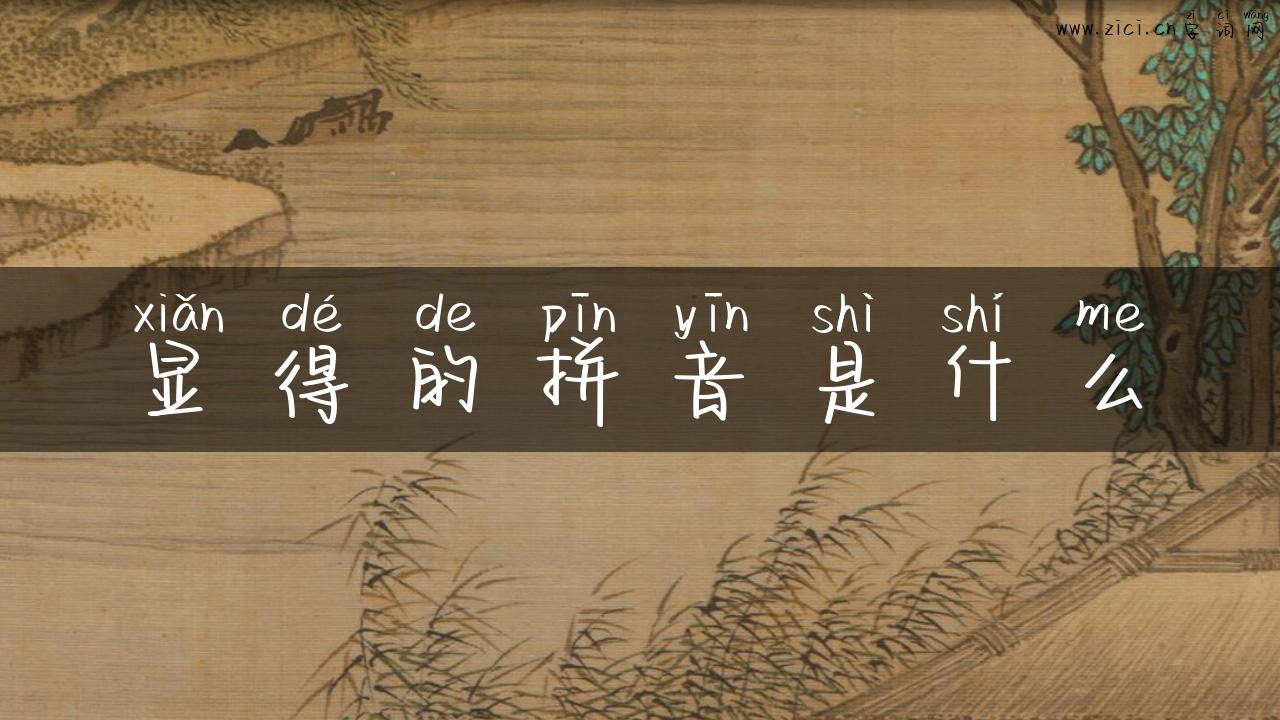 zì cí wǎng
www.zici.cn字词网
xiǎn dé de pīn yīn shì shí me
显得的拼音是什么